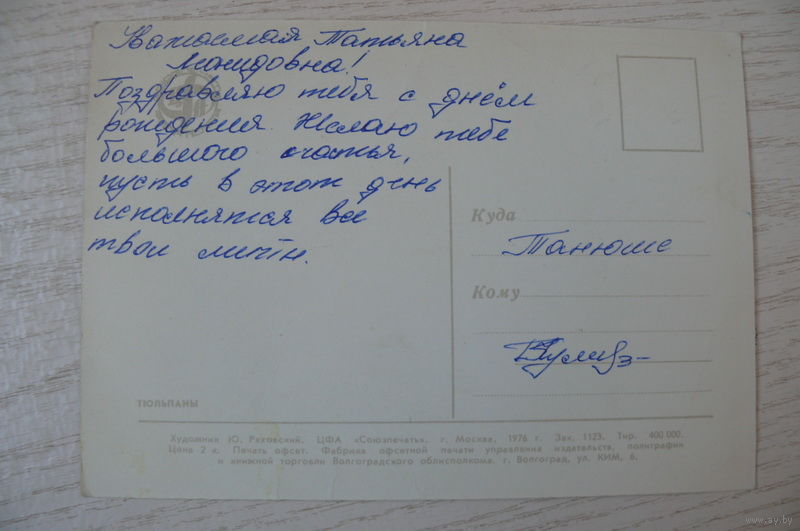 Уважаемая Татьяна
Мамидовна!
Поздравляю тебя с днём
рождения. Желаю тебе
большого счастья,
пусть в этот день
исполнятся все
твои мечты.
Куда
Танюше
Кому
ТЮЛЬПАНЫ
Художник Ю. Ряховский. ЦФА «Союзпечать». г. Москва. 1976 г. Зак. 1123. Тир. 400 000.
Цена 2 к. Печать офсет. Фабрика офсетной печати управления издательств, полиграфии
и книжной торговли Волгоградского облисполкома. г. Волгоград, ул. КИМ, 6.
www.ay.by